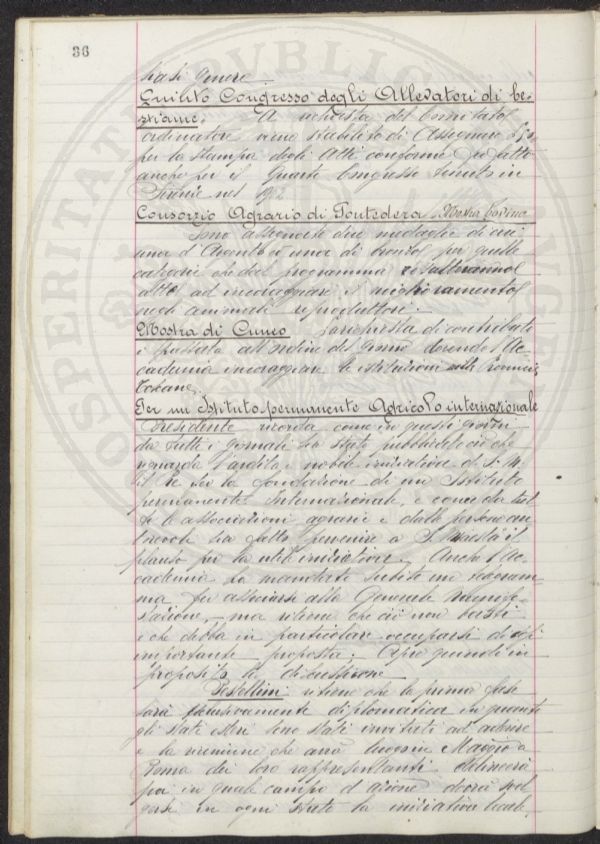 36
siasi genere –
Quinto Congresso degli Allevatori di be-
stiame. A richiesta del Comitato
ordinatore viene stabilito di assegnare
per la stampa degli Atti conforme fu fatto
anche per il Quarto Congresso tenuto in
Firenze nel
Consorzio Agrario di Pontedera Mostra bovina
Sono assegnate due medaglie di cui
una d'Argento e una di bronzo per quelle
categorie che dal programma risulteranno
atte ad incoraggiare il miglioramento
negli animali riproduttori. –
Mostra di Cuneo La richiesta di contributo
è passata all'ordine del giorno dovendo l'Ac-
cademia incoraggiare le istituzioni nelle Provincie
Toscane.
Per un Istituto permanente Agricolo internazionale
Presidente ricorda come in questi giorni
da tutti i giornali sia stato pubblicato ciò che
riguarda l'ardita e nobile iniziativa di S. M.
il Re per la fondazione di un Istituto
permanente Internazionale, e come da tut
te le associazioni agrarie e dalle persone au
torevoli sia fatto pervenire a S. Maestà il
plauso per la utile iniziativa. Anche l'Ac-
cademia ha mandato subito un telegram-
ma per associarsi alla Generale manife-
stazione, ma ritiene che ciò non basti
e che debba in particolare occuparsi di
importante proposta. Apre quindi in
proposito la discussione
Pestellini ritiene che la prima fase
sarà esclusivamente diplomatica in quanto
gli stati esteri sono stati invitati ad aderire
e la riunione che avrà luogo in Maggio a
Roma dei loro rappresentanti delineerà
poi in quale campo d'azione dovrà svol
gersi in ogni stato la iniziativa locale,
PROSPERITATI PUBLICAE